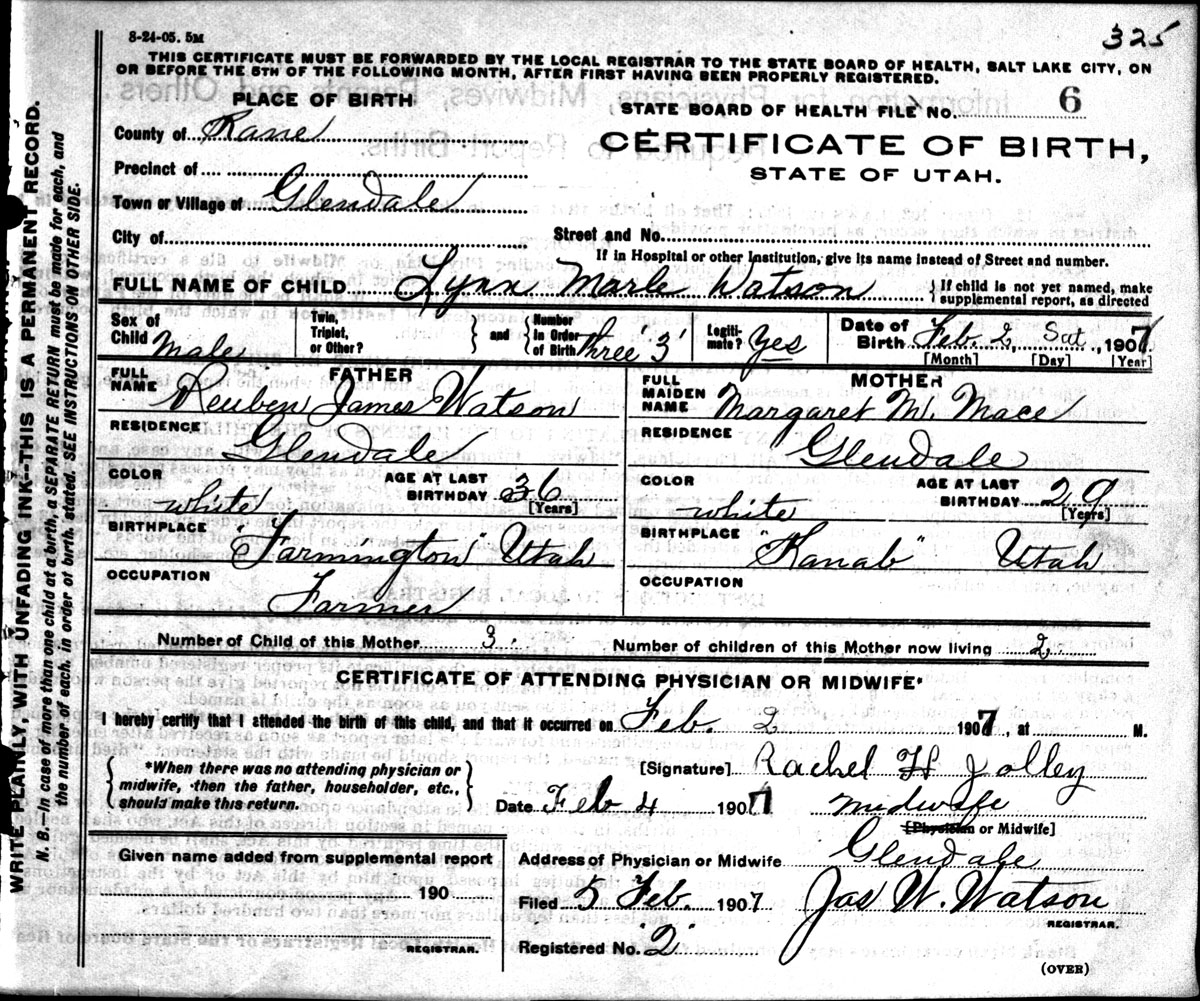 8-24-05. 5M
325
THIS CERTIFICATE MUST BE FORWARDED BY THE LOCAL REGISTRAR TO THE STATE BOARD OF HEALTH, SALT LAKE CITY, ON
OR BEFORE THE 5TH OF THE FOLLOWING MONTH, AFTER FIRST HAVING BEEN PROPERLY REGISTERED.
PLACE OF BIRTH
STATE BOARD OF HEALTH FILE No. 6
County of Kane
CERTIFICATE OF BIRTH,
Precinct of
STATE OF UTAH.
Town or Village of Glendale
City of
Street and No.
If in Hospital or other Institution, give its name instead of Street and number.
FULL NAME OF CHILD Lynn Marle Watson
If child is not yet named, make
supplemental report, as directed
Sex of Child Male
Twin, Triplet, or Other?
and
Number in Order of Birth three '3'
Legiti-mate? Yes
Date of Birth Feb. 2, Sat, 1907
[Month] [Day] [Year]
FATHER
FULL NAME Reuben James Watson
RESIDENCE Glendale
COLOR white
AGE AT LAST BIRTHDAY 36 [Years]
BIRTHPLACE "Farmington" Utah
OCCUPATION Farmer
MOTHER
FULL MAIDEN NAME Margaret M. Mace
RESIDENCE Glendale
COLOR white
AGE AT LAST BIRTHDAY 29 [Years]
BIRTHPLACE "Kanab" Utah
OCCUPATION
Number of Child of this Mother 3. Number of children of this Mother now living 2.
CERTIFICATE OF ATTENDING PHYSICIAN OR MIDWIFE*
I hereby certify that I attended the birth of this child, and that it occurred on Feb. 2 1907, at M.
*When there was no attending physician or
midwife, then the father, householder, etc.,
should make this return.
[Signature] Rachel H Jolley
Date Feb 4 1907 Midwife
[Physician or Midwife]
Given name added from supplemental report
190
REGISTRAR.
Address of Physician or Midwife Glendale
Filed 5 Feb. 1907 Jas W. Watson
REGISTRAR.
Registered No. "2"
(OVER)
WRITE PLAINLY, WITH UNFADING INK--THIS IS A PERMANENT RECORD.
N. B.—In case of more than one child at a birth, a SEPARATE RETURN must be made for each, and
the number of each, in order of birth, stated. SEE INSTRUCTIONS ON OTHER SIDE.